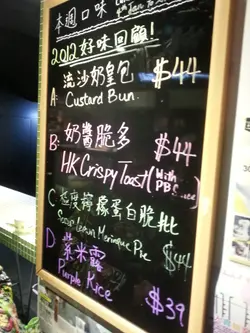 本週口味
2012好味回顧!
流沙奶皇包 $44
A: Custard Bun.
B: 奶醬脆多 $44
HK Crispy Toast (With
PB
C 極度檸檬蛋白脆批
Lemon Meringue Pie $44
D 紫米露
Purple Rice $39